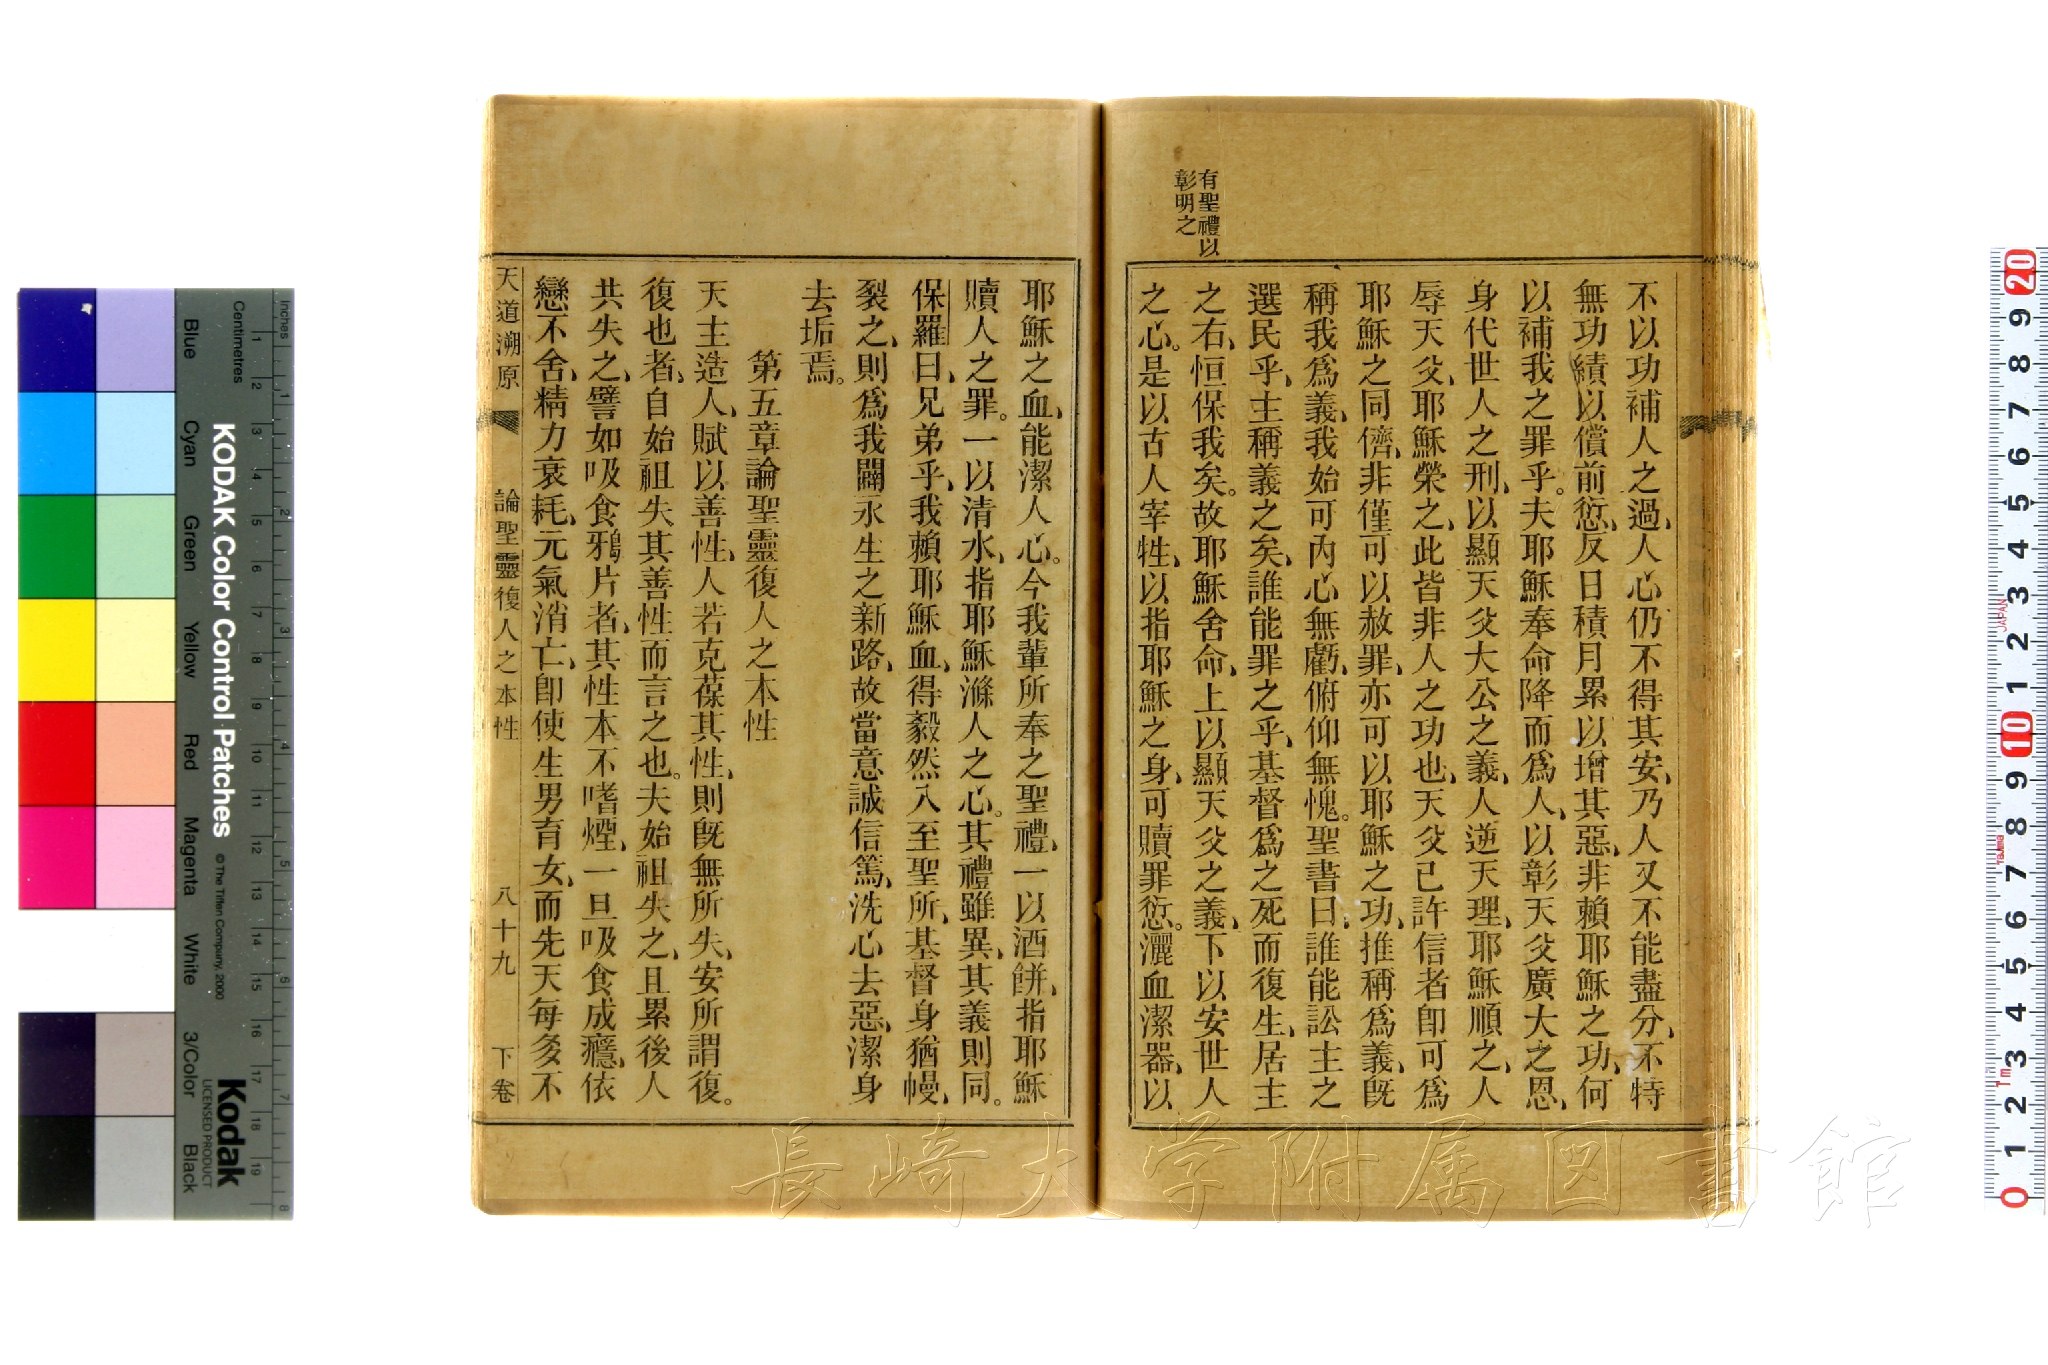 有聖禮以
彰明之
不以功補人之過、人心仍不得其安、乃人又不能盡分、不特
無功績以償前愆、反日積月累以增其惡、非賴耶穌之功、何
以補我之罪乎。夫耶穌奉命降而爲人、以彰天父廣大之恩、
身代世人之刑、以顯天父大公之義、人逆天理、耶穌順之、人
辱天父、耶穌榮之、此皆非人之功也、天父已許信者卽可爲
耶穌之同儕、非僅可以赦罪、亦可以耶穌之功、推稱爲義、旣
稱我爲義、我始可內心無虧、俯仰無愧。聖書曰、誰能訟主之
選民乎、主稱義之矣、誰能罪之乎、基督爲之死而復生、居主
之右、恒保我矣。故耶穌舍命、上以顯天父之義、下以安世人
之心。是以古人宰牲、以指耶穌之身、可贖罪愆。灑血潔器、以
耶穌之血、能潔人心。今我輩所奉之聖禮、一以酒餅、指耶穌
贖人之罪。一以清水、指耶穌滌人之心。其禮雖異、其義則同。
保羅曰、兄弟乎、我賴耶穌血、得毅然入至聖所、基督身猶幔、
裂之、則爲我闢永生之新路、故當意誠信篤、洗心去惡、潔身
去垢焉。
第五章論聖靈復人之本性
天主造人、賦以善性、人若克葆其性、則旣無所失、安所謂復。
復也者、自始祖失其善性而言之也。夫始祖失之、且累後人
共失之、譬如吸食鴉片者、其性本不嗜煙、一旦吸食成癮、依
戀不舍、精力衰耗、元氣消亡、卽使生男育女、而先天每多不
天道溯原
論聖靈復人之本性
八十九
下卷
KODAK Color Control Patches
© The Tiffen Company, 2000
Kodak
LICENSED PRODUCT
Inches
Centimetres
Blue
Cyan
Green
Yellow
Red
Magenta
White
3/Color
Black
1 2 3 4 5 6 7 8 9 10 11 12 13 14 15 16 17 18 19
1 2 3 4 5 6 7 8
20 9 8 7 6 5 4 3 2 1 10 9 8 7 6 5 4 3 2 1 0
JAPAN
Tajima
長崎大学附属図書館